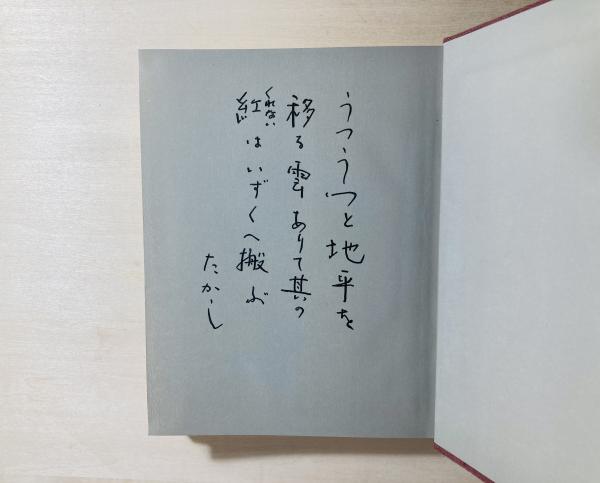 うつうつと地平を
移る雲ありて其の
くれない
紅はいずくへ搬ぶ
たかし